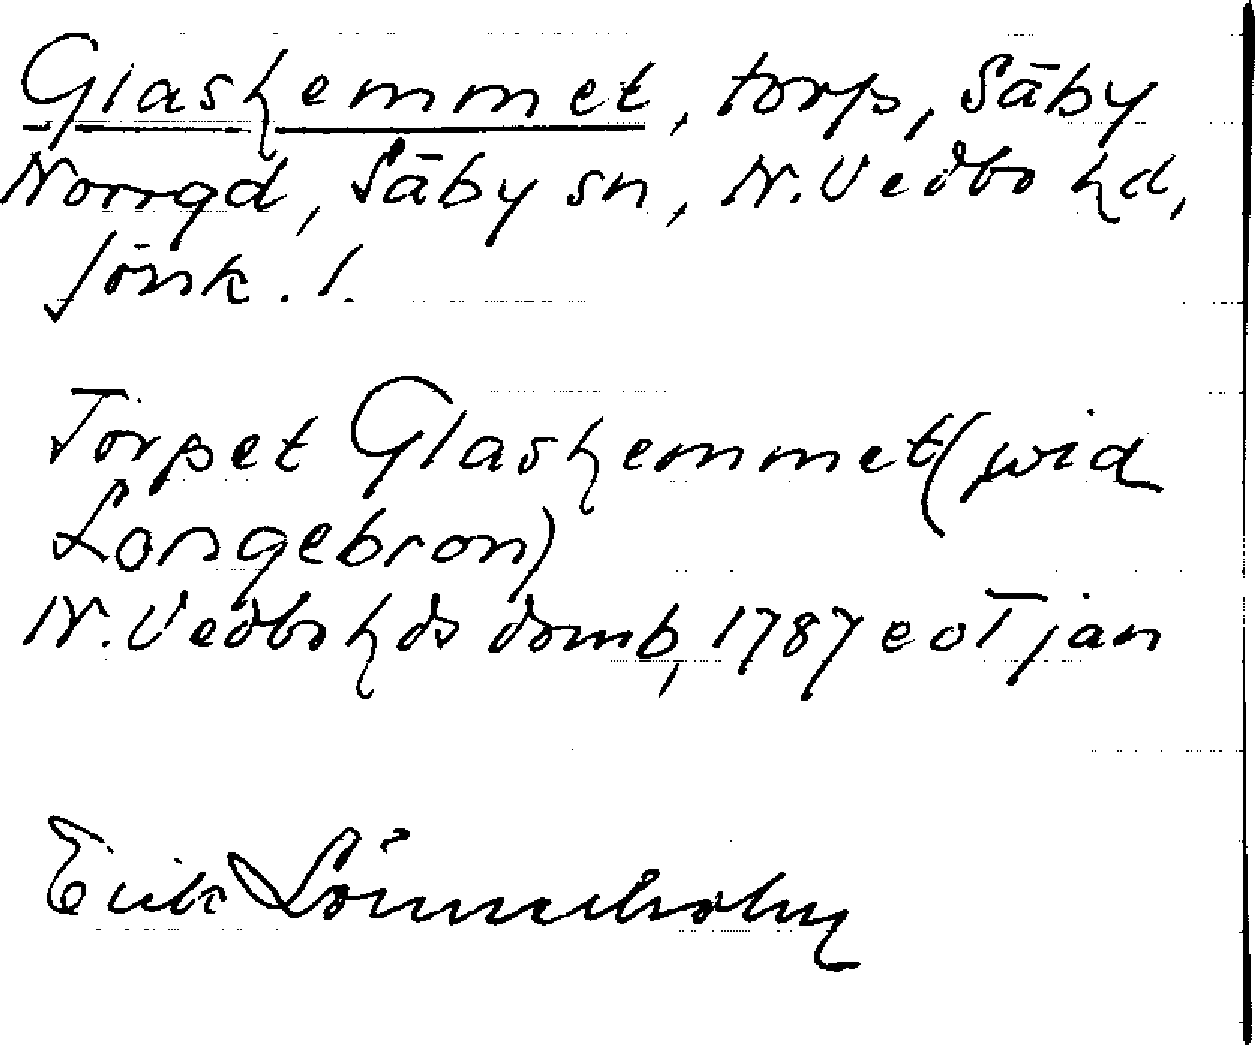 Glashemmet, torp, Säby
Norrgd, Säby sn, N. Vedbo hd,
Jönk. l.
Torpet Glashemmet (wid
Longebron)
N. Vedbo hds domb, 1787 e o T jan
Erik Lönnerholm